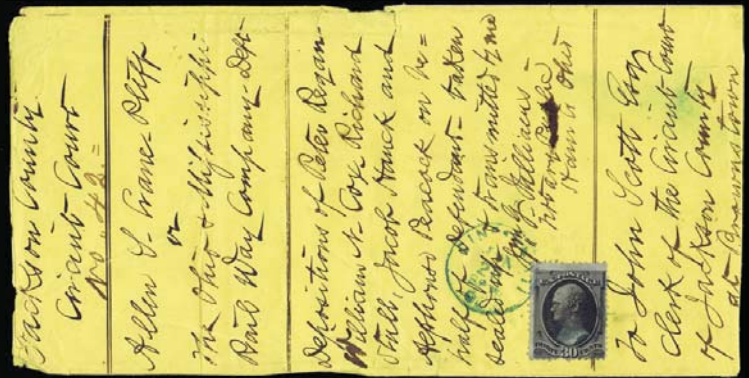 Jackson County
Circuit Court
No. 42 =
Allen S. Crane - Pltff
vs
The Ohio & Mississippi
Rail Way Company - Deft
Depositions of Peter Regan -
William N. Cope Richard
Stull, Jacob Hauck and
Alphonso Peacock on be=
half of Defendant - taken
sealed up & transmitted by me
Williams -
Notary Public
Ham Co Ohio
U.S. POSTAGE
30
To John Scott Esq
Clerk of the Circuit Court
of Jackson County
at Brownstown